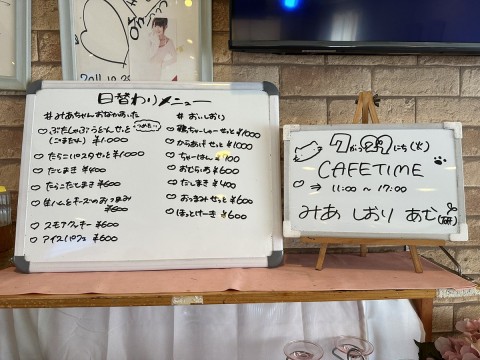 2011.10.23
日替わりメニュー
#みあちゃんおなかあいた
♡ ぶたしゃぶうどんせっと
(ごまだれ) ¥1000
♡ たらこパスタせっと ¥1000
♡ だしまき ¥400
♡ たらこだしまき ¥600
♡ 生ハムとチーズのおつまみ
¥600
♡ スモアクッキー ¥600
♡ アイスパフェ ¥600
# おいしおり
♡ 鶏ちゃーしゅーせっと ¥1000
♡ からあげせっと ¥1000
♡ ちゃーはん ¥700
♡ おむらいす ¥600
♡ だしまき ¥400
♡ おつまみせっと ¥600
♡ ほっとけーき ¥600
7がつ29にち(火)
CAFETIME
♡ ⇒ 11:00 ~ 17:00
みあ しおり あむ(研)